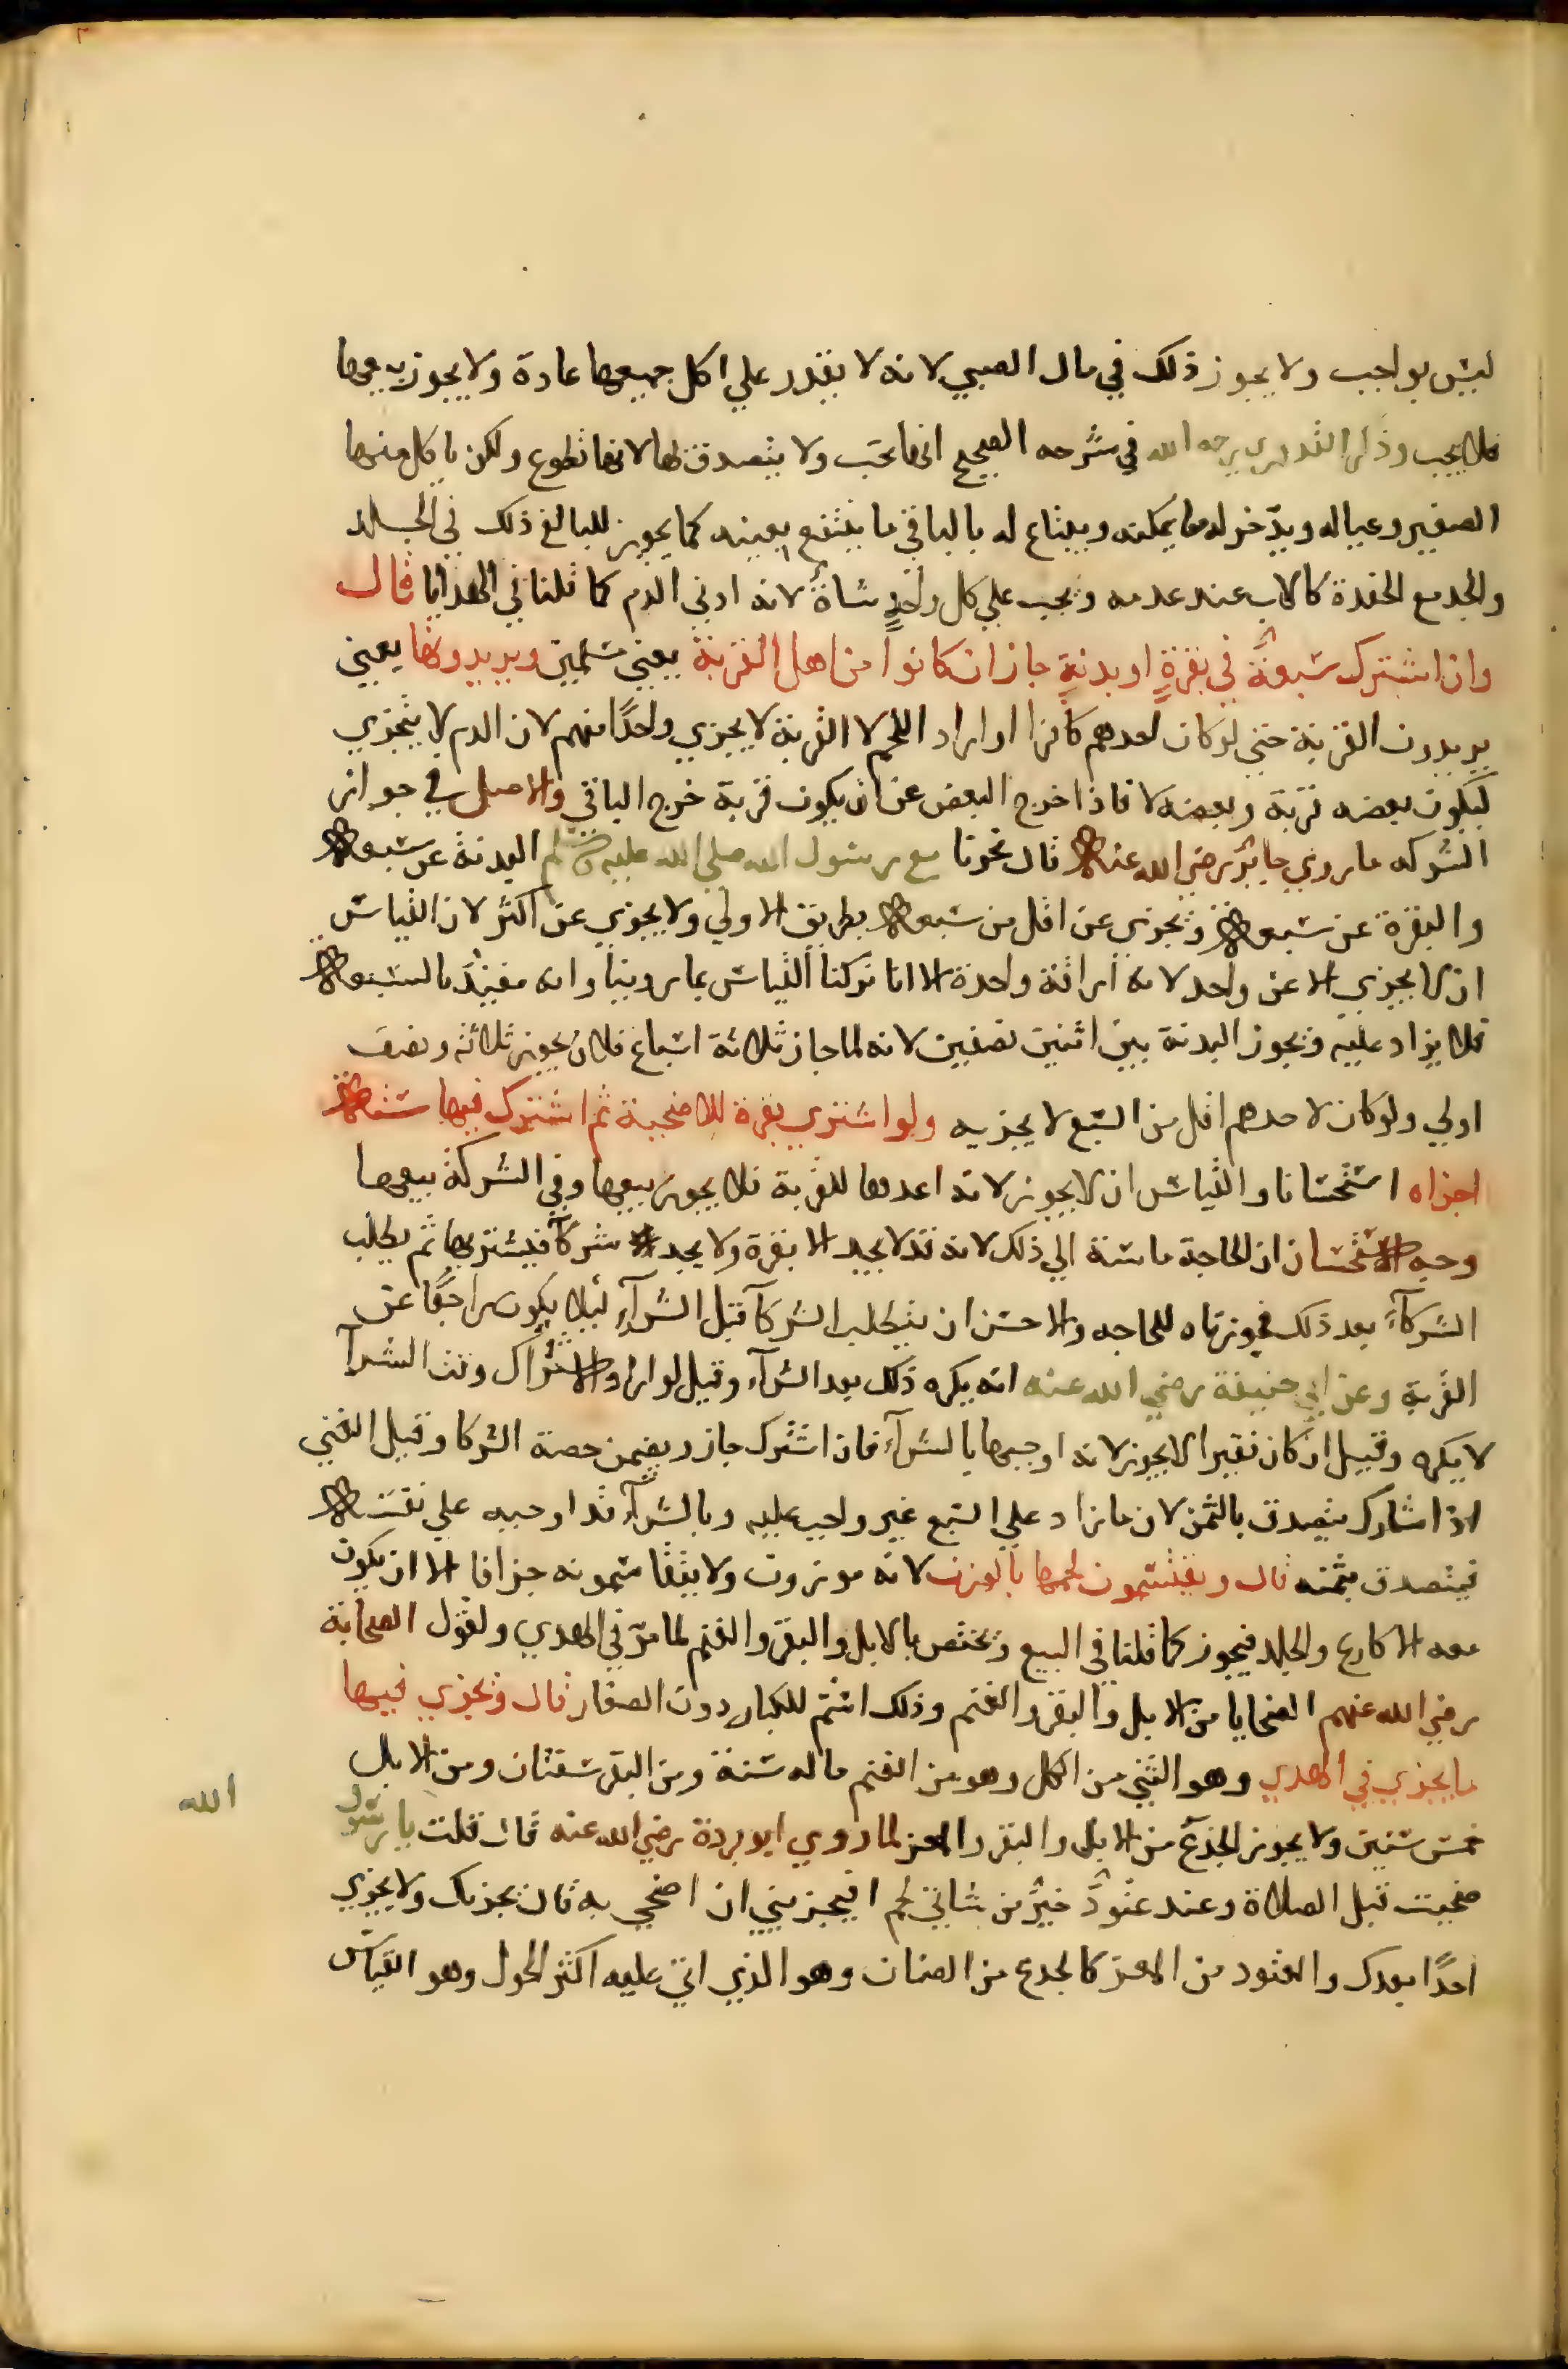 ليس بواجب ولا يجوز ذلك في مال الصبي لانه لا يقدر علي اكل جميعها عادة ولا يجوز بيعها
فلا يجب وذكر القدوري رحمه الله في شرحه الصحيح انها تجب ولا يتصدق بها لانها تطوع ولكن ياكل منها
الصغير وعياله ويدخر له ما يمكنه ويبتاع له بالباقي ما ينتفع بعينه كما يجوز للبالغ ذلك في الجلد
والجد مع الحفدة كالاب عند عدمه وتجب علي كل واحد شاة لانه ادني الدم كما قلنا في الهدايا قال
وان اشترك سبعة في بقرة او بدنة جاز ان كانوا من اهل القربة يعني مسلمين ويريدونها يعني
يريدون القربة حتي لو كان احدهم كافرا او اراد اللحم لا القربة لا يجزي واحدا منهم لان الدم لا يتجزي
ليكون بعضه قربة وبعضه لا فاذا خرج البعض عن ان يكون قربة خرج الباقي والاصل في جواز
الشركه ما روي جابر رضي الله عنه قال نحرنا مع رسول الله صلي الله عليه وسلم البدنة عن سبعة
والبقرة عن سبعة وتجزي عن اقل من سبعة بطريق الاولي ولا يجزي عن اكثر لان القياس
ان لا يجزي الا عن واحد لانه اراقة واحدة الا انا تركنا القياس بما روينا وانه مقيد بالسبعة
فلا يزاد عليه وتجوز البدنة بين اثنين نصفين لانه لما جاز ثلاثة اسباع فلان يجوز ثلاثة ونصف
اولي ولو كان لاحدهم اقل من السبع لا يجزيه ولو اشتري بقرة للاضحية ثم اشترك فيها ستة
اجزاه استحسانا والقياس ان لا يجوز لانه اعدها للقربة فلا يجوز بيعها وفي الشركة بيعها
وجه الاستحسان ان الحاجة ماسة الي ذلك لانه قد لا يجد الا بقرة ولا يجد شركآ فيشتريها ثم يطلب
الشركآء بعد ذلك فجوزناه للحاجه والاحسن ان يتطلب الشركآ قبل الشرآء ليلا يكون راجعا عن
القربة وعن ابي حنيفة رضي الله عنه انه يكره ذلك بعد الشرآء وقيل لو اراد الاشتراك وقت الشرآ
لا يكره وقيل ان كان فقيرا لا يجوز لانه اوجبها بالشرآء فان اشترك جاز ويضمن حصة الشركا وقيل الغني
اذا شارك يتصدق بالثمن لان ما زاد علي السبع غير واجب عليه وبالشرآء قد اوجبه علي نفسه
فيتصدق بثمنه قال ويقتسمون لحمها بالوزن لانه موزون ولا يتقاسمونه جزافا الا ان يكون
معه الاكارع والجلد فيجوز كما قلنا في البيع وتختص بالابل والبقر والغنم لما مر في الهدي ولقول الصحابة
رضي الله عنهم الضحايا من الابل والبقر والغنم وذلك اسم للكبار دون الصغار قال وتجزي فيها
ما يجزي في الهدي وهو الثني من الكل وهو من الغنم ما له سنة ومن البقر سنتان ومن الابل
خمس سنين ولا يجوز الجذع من الابل والبقر والمعز لما روي ابو بردة رضي الله عنه قال قلت يا رسول الله
ضحيت قبل الصلاة وعند عتود خير من شاتي لحم افيجزيني ان اضحي به قال يجزيك ولا يجزي
احدا بعدك والعتود من المعز كالجدع من الضان وهو الذي اتي عليه اكثر الحول وهو القياس